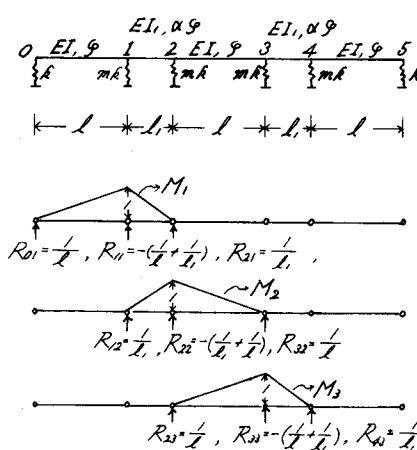 EI₁, αφ EI₁, αφ
0 EI, φ 1 2 EI, φ 3 4 EI, φ 5
k mk mk mk mk k
l l₁ l l₁ l
M₁
1
R₀₁=1/l , R₁₁=-(1/l+1/l₁), R₂₁=1/l₁ ,
M₂
1
R₁₂=1/l₁, R₂₂=-(1/l₁+1/l), R₃₂=1/l
M₃
1
R₂₃=1/l, R₃₃=-(1/l+1/l₁), R₄₃=1/l₁